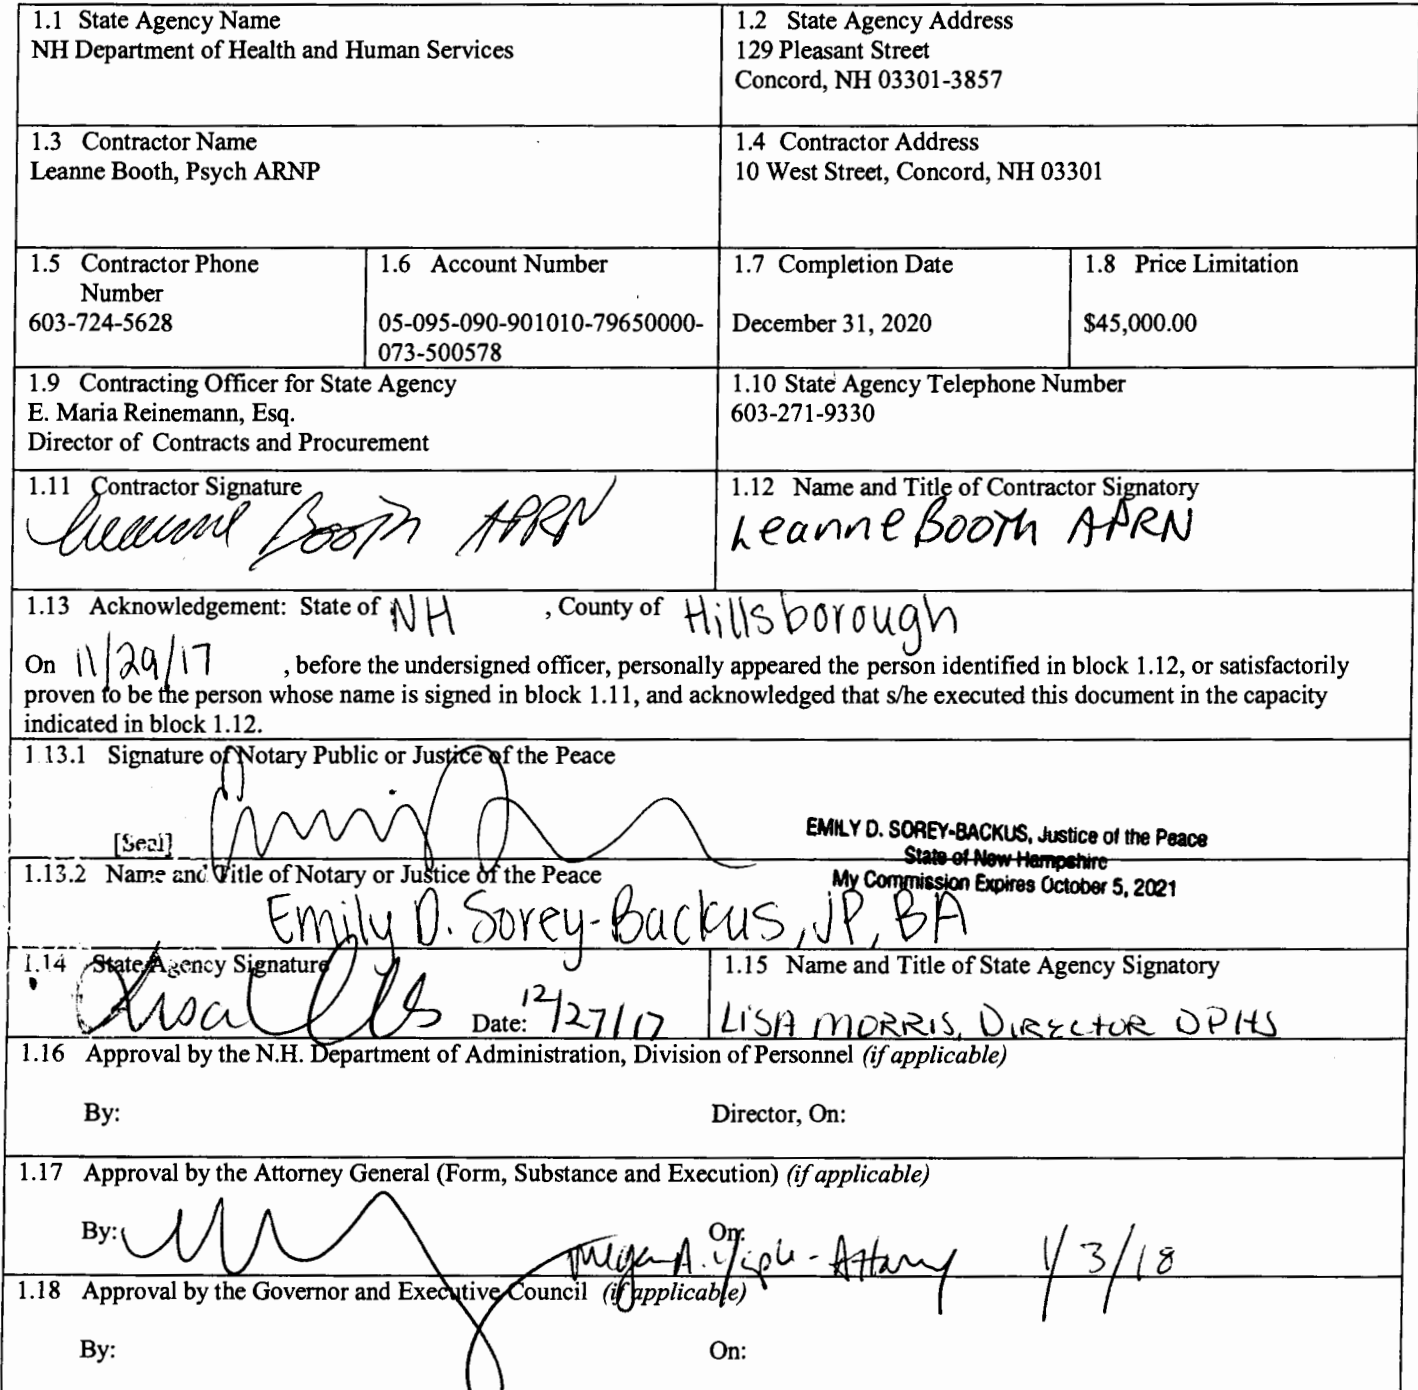 1.1 State Agency Name
NH Department of Health and Human Services
1.2 State Agency Address
129 Pleasant Street
Concord, NH 03301-3857
1.3 Contractor Name
Leanne Booth, Psych ARNP
1.4 Contractor Address
10 West Street, Concord, NH 03301
1.5 Contractor Phone
Number
603-724-5628
1.6 Account Number
05-095-090-901010-79650000-
073-500578
1.7 Completion Date
December 31, 2020
1.8 Price Limitation
$45,000.00
1.9 Contracting Officer for State Agency
E. Maria Reinemann, Esq.
Director of Contracts and Procurement
1.10 State Agency Telephone Number
603-271-9330
1.11 Contractor Signature
Leanne Booth APRN
1.12 Name and Title of Contractor Signatory
Leanne Booth APRN
1.13 Acknowledgement: State of NH , County of Hillsborough
On 11/29/17 , before the undersigned officer, personally appeared the person identified in block 1.12, or satisfactorily
proven to be the person whose name is signed in block 1.11, and acknowledged that s/he executed this document in the capacity
indicated in block 1.12.
1.13.1 Signature of Notary Public or Justice of the Peace
[Seal]
EMILY D. SOREY-BACKUS, Justice of the Peace
State of New Hampshire
My Commission Expires October 5, 2021
1.13.2 Name and Title of Notary or Justice of the Peace
Emily D. Sorey-Backus, JP, BA
1.14 State Agency Signature
Date: 12/27/17
1.15 Name and Title of State Agency Signatory
LISA MORRIS, DIRECTOR DPHS
1.16 Approval by the N.H. Department of Administration, Division of Personnel (if applicable)
By: Director, On:
1.17 Approval by the Attorney General (Form, Substance and Execution) (if applicable)
By: On:
Megan A. - Attorney 1/3/18
1.18 Approval by the Governor and Executive Council (if applicable)
By: On: